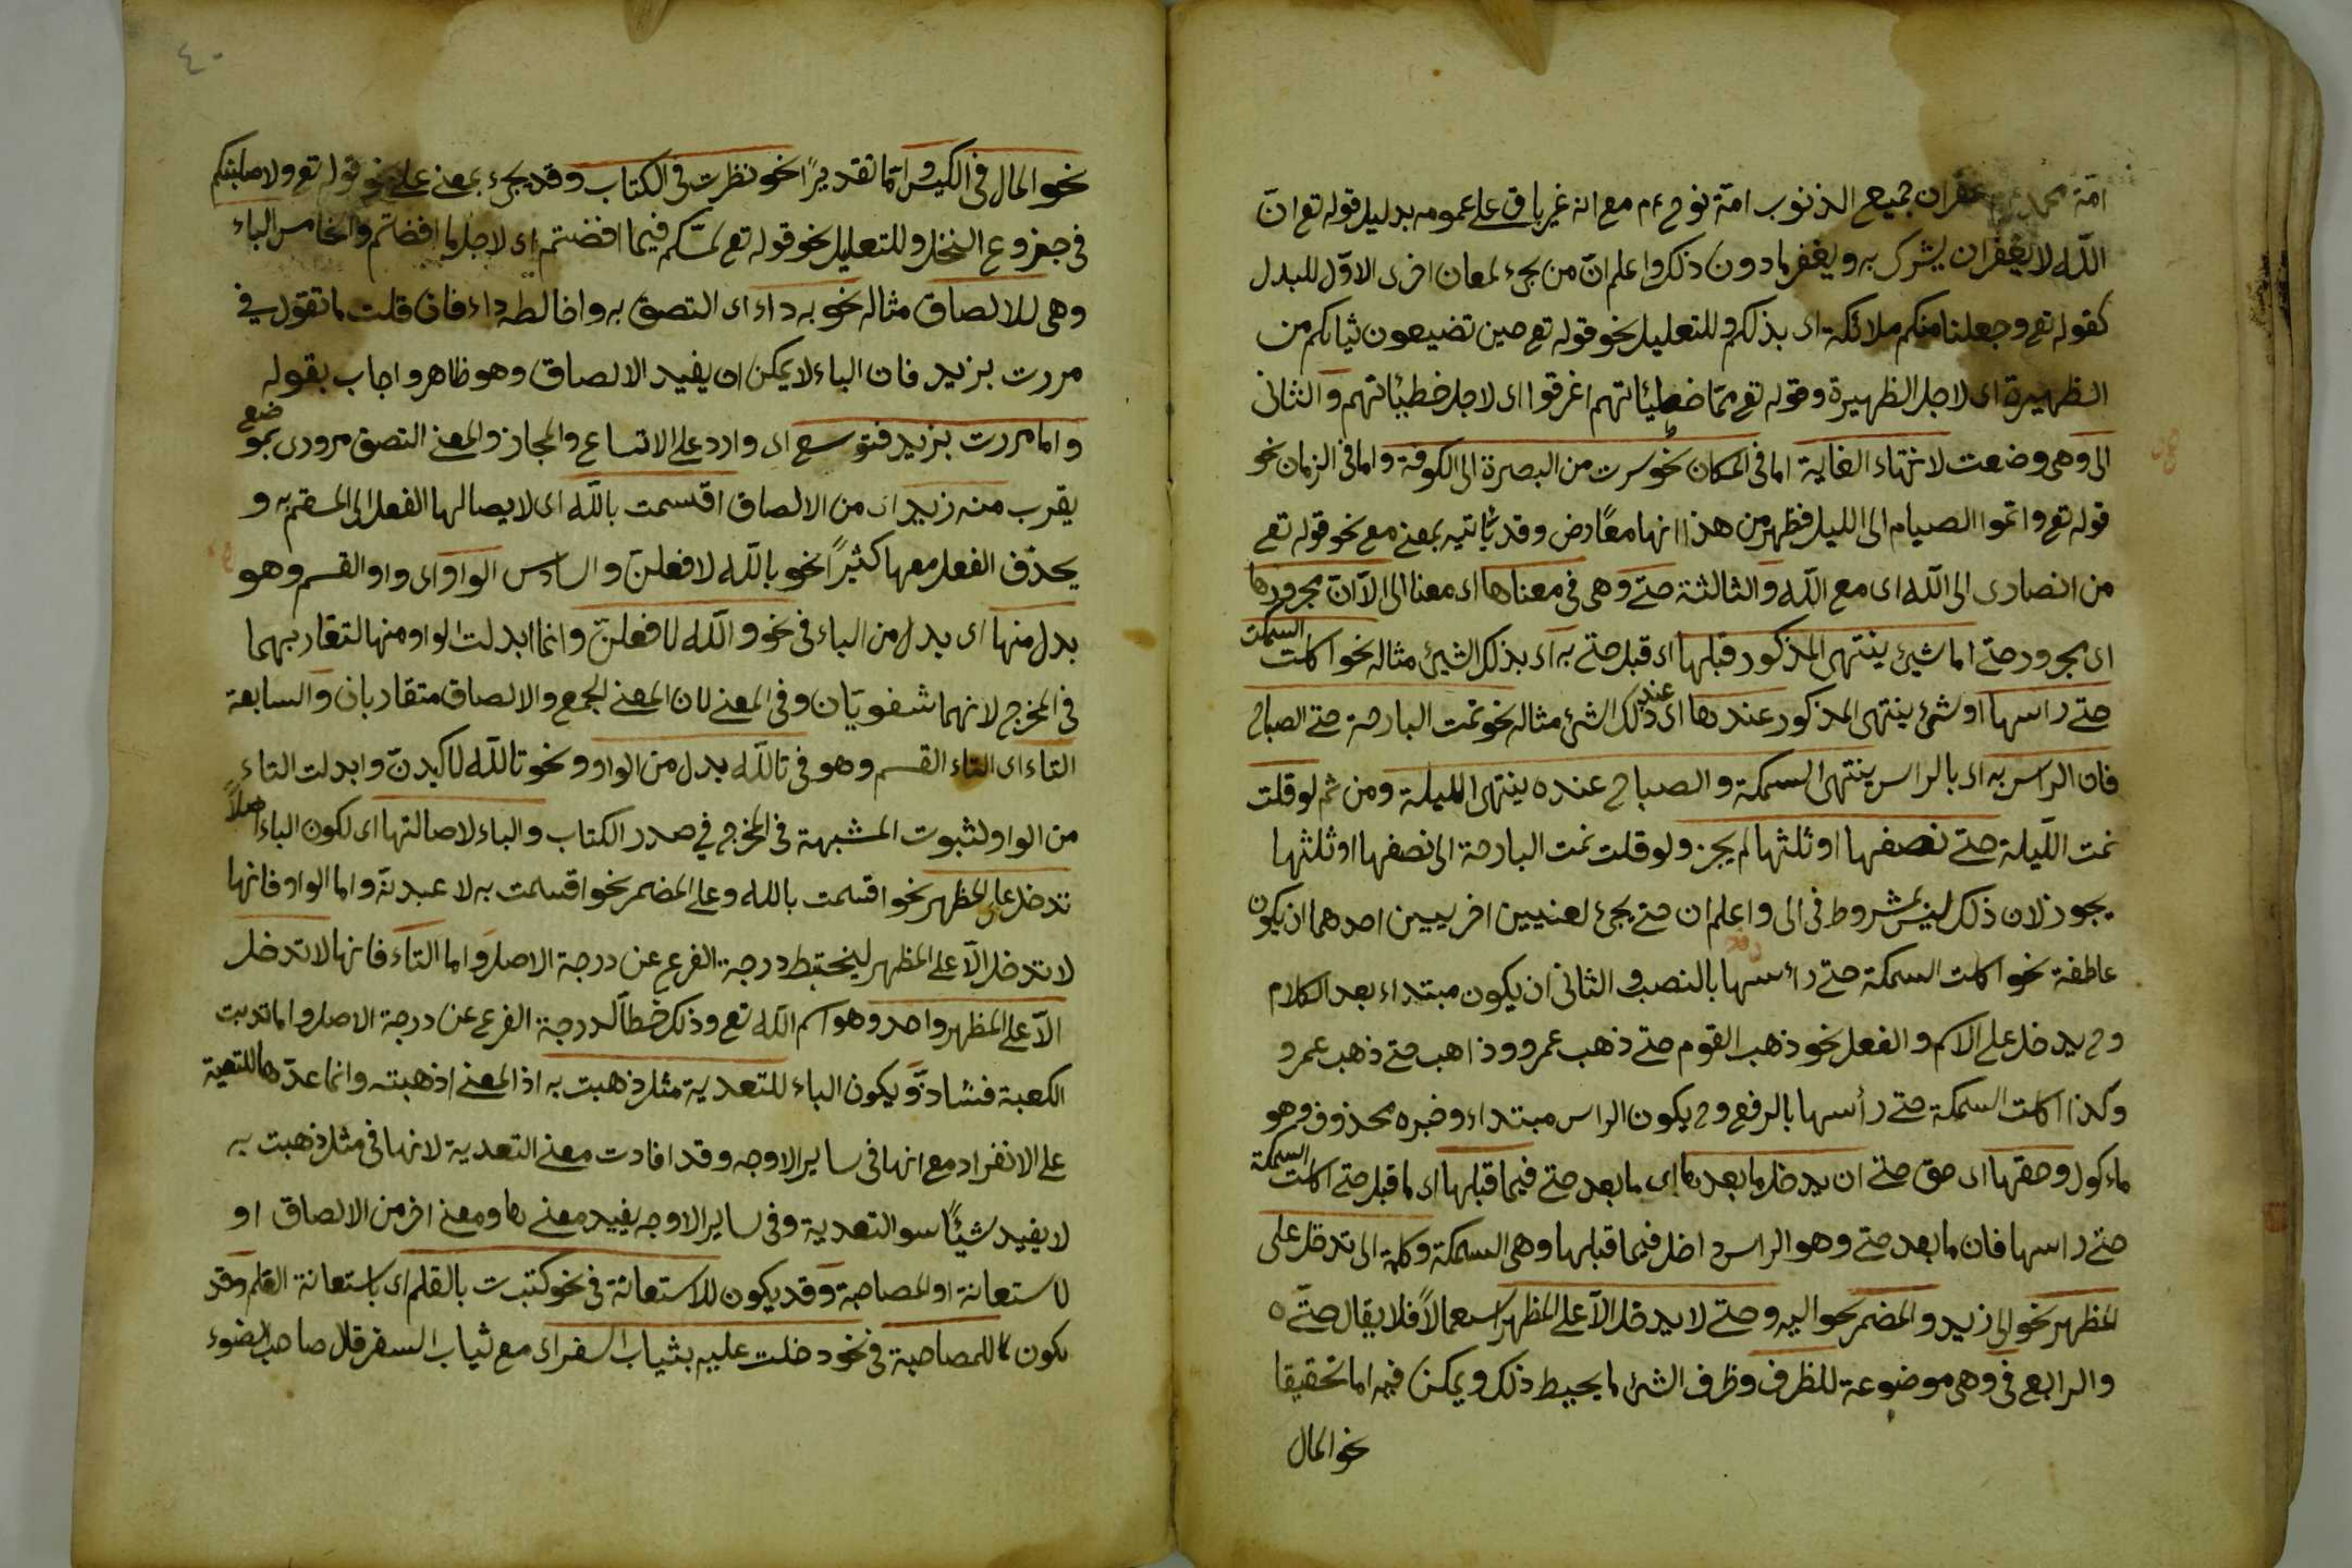 امّة محمد غفران جميع الذنوب امّة نوح ءم مع انه غير باق على عمومه بدليل قوله تع انّ
اللّه لا يغفر ان يشرك به ويغفر مادون ذلك واعلم انّ من يجىء لمعان اخرى الاوّل للبدل
كقوله تع وجعلنا منكم ملائكة اى بذلكم وللتعليل نحو قوله تع حين تضيعون ثيابكم من
الظهيرة اى لاجل الظهيرة وقوله تع ممّا خطيئاتهم اغرقوا اى لاجل خطيئاتهم والثانى
الى وهى وضعت لانتهاء الغاية اما فى المكان نحو سرت من البصرة الى الكوفة واما فى الزمان نحو
قوله تع واتموا الصيام الى الليل فظهر من هذا انها معًا رض وقد يأتيه بمعنى مع نحو قوله تع
من انصارى الى اللّه اى مع اللّه والثالثة حتى وهى فى معناها اى معنا الى الّا انّ مجرورها
اى مجرور حتى اما شيئ ينتهى المذكور قبلها اى قبل حتى به اى بذلك الشيئ مثاله نحو اكلت السمكت
حتى راسها او شئ ينتهى المذكور عندها اى عند ذلك الشئ مثاله نحو نمت البارحة حتى الصباح
فان الراس به اى بالراس ينتهى السمكة والصباح عنده ينتهى الليلة ومن ثم لو قلت
نمت اللّيلة حتى نصفها او ثلثها لم يجز ولو قلت نمت البارحة الى نصفها او ثلثها
يجوز لان ذلك ليس بمشروط فى الى واعلم ان حتى يجئ لمعنيين اخريين احدهما ان يكون
عاطفة نحو اكلت السمكة حتى رأسها بالنصب والثانى ان يكون مبتداء بعد الكلام
وح يدخل على الاسم والفعل نحو ذهب القوم حتى ذهب عمرو وذاهب حتى ذهب عمرو
وكذا اكلت السمكة حتى رأسها بالرفع وح يكون الراس مبتداء وخبره محذوف وهو
ماءكول وحقها اى حق حتى ان يدخل ما بعدها اى ما بعد حتى فيما قبلها اى ما قبل حتى اكلت السمكة
حتى راسها فان ما بعد حتى وهو الراس داخل فيما قبلها وهى السمكة وكلمة الى تدخل على
المظهر نحو الى زيد والمضمر نحو اليه وحتى لا يدخل الّا على المظهر استعمالًا فلا يقال حتّه
والرابع فى وهى موضوعة للظرف وظرف الشئ ما يحيط ذلك ويمكن فيه اما تحقيقا
نحو المال
٤٠
نحو المال فى الكيس وامّا تقديرًا نحو نظرت فى الكتاب وقد يجىء بمعنى على نحو قوله تع ولاصلبنكم
فى جذوع النخل وللتعليل نحو قوله تع لمسّكم فيما افضتم اى لاجل ما افضتم والخامس الباء
وهى للالصاق مثاله نحو به داء اى التصق به وخالطه داء فان قلت ما تقول فى
مررت بزيد فان الباء لا يمكن ان يفيد الالصاق وهو ظاهر واجاب بقوله
واما مررت بزيد فتوسع اى وارد على الاتساع والمجاز والمعنى التصق مرورى بموضع
يقرب منه زيد اى من الالصاق اقسمت باللّه اى لايصالها الفعل الى المقسم به و
يحذف الفعل معها كثيرًا نحو باللّه لافعلنّ والسادس الواو اى واو القسم وهو
بدل منها اى بدل من الباء فى نحو واللّه لافعلنّ وانما ابدلت الواو منها لتقاربهما
فى المخرج لانهما شفويّان وفى المعنى لان المعنى الجمع والالصاق متقاربان والسابعة
التاء اى التاء القسم وهو فى تاللّه بدل من الواو ونحو تاللّه لاكيدنّ وابدلت التاء
من الواو لثبوت المشبهة فى المخرج فى صدر الكتاب والباء لاصالتها اى لكون الباء اصلًا
تدخل على المظهر نحو اقسمت بالله وعلى المضمر نحو اقسمت به لاعبدنّه واما الواو فانها
لا تدخل الّا على المظهر لينحبط درجة الفرع عن درجة الاصل واما التاء فانها لا تدخل
الّا على المظهر واحد وهو اسم اللّه تع وذلك حطّا لدرجة الفرع عن درجة الاصل واما تربت
الكعبة فشاذّ ويكون الباء للتعدية مثل ذهبت به اذ المعنى اذهبته وانما عدّها للتعدية
على الانفراد مع انها فى ساير الاوجه وقد افادت معنى التعدية لانها فى مثل ذهبت به
لا يفيد شيئًا سو التعدية وفى ساير الاوجه يفيد معنى ها ومعنى اخر من الالصاق او
لاستعانة او المصاحبة وقد يكون للاستعانة فى نحو كتبت بالقلم اى باستعانة القلم وقد
يكون للمصاحبة فى نحو دخلت عليه بثياب السفر اى مع ثياب السفر قال صاحب الضوء